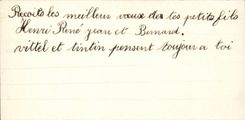 Reçoits les meilleur vœux de tes petits fils
Henri René jean et Bernard.
vittel et tintin pensent toujour a toi